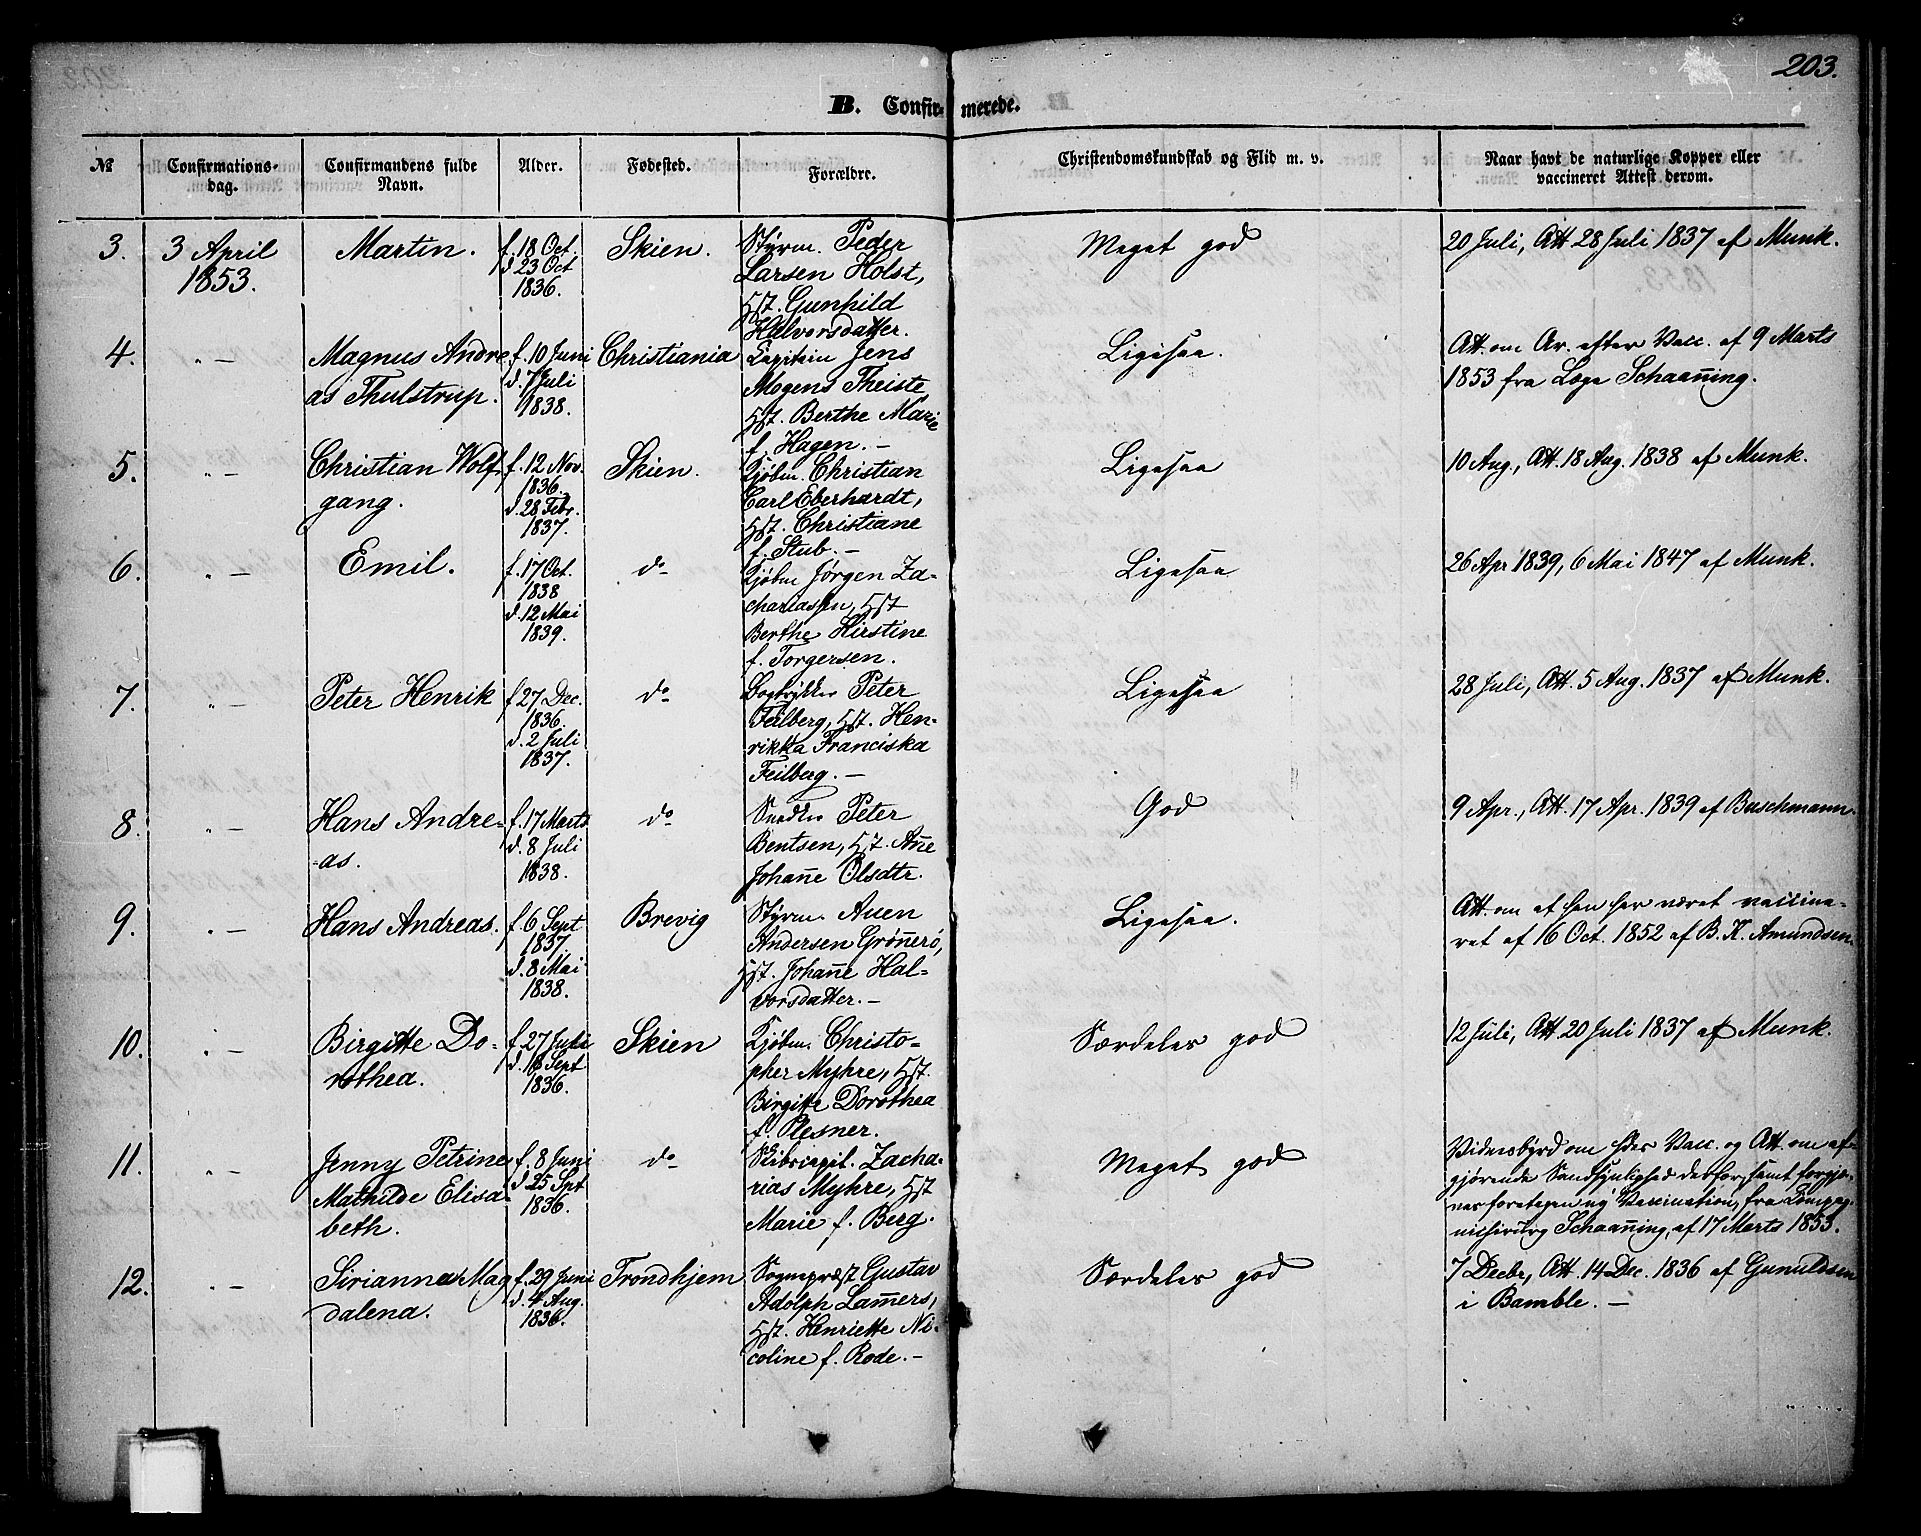 203.
B. Confirmerede.
№ Confirmations-dag. Confirmandens fulde Navn. Alder. Fødested. Forældre. Christendomskundskab og Flid m. v. Naar havt de naturlige Kopper eller vaccineret Attest derom.
3. 3 April 1853. Martin. f. 18 Oct. d 23 Oct 1836. Skien. Styrm. Peder Larsen Holst, Hst. Gunhild Halvorsdatter. Meget god 20 Juli, Att. 28 Juli 1837 af Munk.
4. „ — Magnus Andreas Thulstrup. f. 10 Juni d. 7 Juli 1838. Christiania Capitain Jens Mogens Theiste, Hst. Berthe Marie f. Hagen. — Ligesaa. Att. om Ar. efter Vacc. af 9 Marts 1853 fra Læge Schaanning.
5. „ — Christian Wolfgang. f. 12 Nov. 1836. d. 28 Febr. 1837. Skien. Kjøbm. Christian Carl Eberhardt, Hst. Christiane f. Stub. — Ligesaa 10 Aug., Att. 18 Aug. 1838 af Munk.
6. „ — Emil. f. 17 Oct. 1838 d. 12 Mai 1839. do Kjøbm Jørgen Zachariassen, Hst Berthe Kirstine f. Torgersen. Ligesaa 26 Apr 1839, 6 Mai 1847 af Munk.
7. „ — Peter Henrik f 27 Dec. 1836. d. 2 Juli 1837. do Bogtrykker Peter Feilberg, Hst. Henrikka Franciska Feilberg. — Ligesaa 28 Juli, Att. 5 Aug. 1837 af Munk.
8. „ — Hans Andreas. f. 17 Marts d. 8 Juli 1838. do Snedker Peter Bentsen, Hst. Añe Johañe Olsdtr. God 9 Apr., Att. 17 Apr. 1839 af Buschmann.
9. „ — Hans Andreas. f. 6 Sept 1837. d. 8 Mai 1838. Brevig Styrm. Auen Andersen Grøñerö, Hst. Johañe Halvorsdatter. — Ligesaa. Att. om at han har været vaccineret af 16 Oct. 1852 af B. K. Amundsen.
10. „ — Birgitte Dorothea. f. 27 Juli d. 18 Sept 1836. Skien Kjøbm. Christopher Myhre, Hst. Birgitte Dorothea f. Plesner. Særdeles god 12 Juli, Att. 20 Juli 1837 af Munk.
11. „ — Jenny Petrine Mathilde Elisabeth. f. 8 Juni d. 25 Spt 1836. do Skibscapit. Zacharias Myhre, Hst Marie f. Berg. Meget god Vidnesbyrd om hdes Vacc. og Att. om afgjørende Sandsynlighed derfor, samt forgjæves foretagen ny Vaccination, fra Compagnichirurg Schaanning, af 17 Marts 1853.
12. „ — Sirianna Magdalena. f. 29 Juni d. 4 Aug. 1836. Trondhjem Sognepræst Gustav Adolph Lam̄ers, Hst. Henriette Nicoline f. Rode. — Særdeles god 7 Decbr, Att. 14 Dec. 1836 af Gunuldsen i Bamble. —